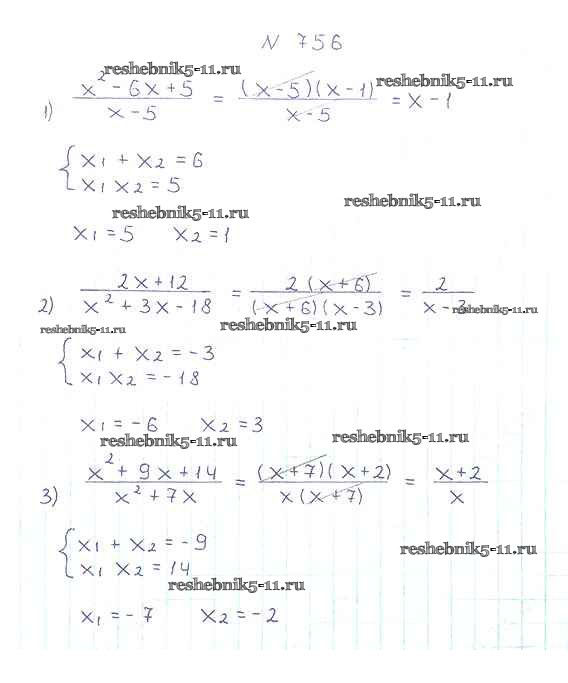 N 756
reshebnik5-11.ru
1) (x² - 6x + 5)/(x - 5) = ((x-5)(x-1))/(x-5) = x - 1
reshebnik5-11.ru
{ x₁ + x₂ = 6
x₁ x₂ = 5
reshebnik5-11.ru
reshebnik5-11.ru
x₁ = 5 x₂ = 1
2) (2x + 12)/(x² + 3x - 18) = (2(x+6))/((x+6)(x-3)) = 2/(x - 3)
reshebnik5-11.ru
reshebnik5-11.ru
reshebnik5-11.ru
{ x₁ + x₂ = -3
x₁ x₂ = -18
x₁ = -6 x₂ = 3
reshebnik5-11.ru
reshebnik5-11.ru
3) (x² + 9x + 14)/(x² + 7x) = ((x+7)(x+2))/(x(x+7)) = (x+2)/x
{ x₁ + x₂ = -9
x₁ x₂ = 14
reshebnik5-11.ru
reshebnik5-11.ru
x₁ = -7 x₂ = -2